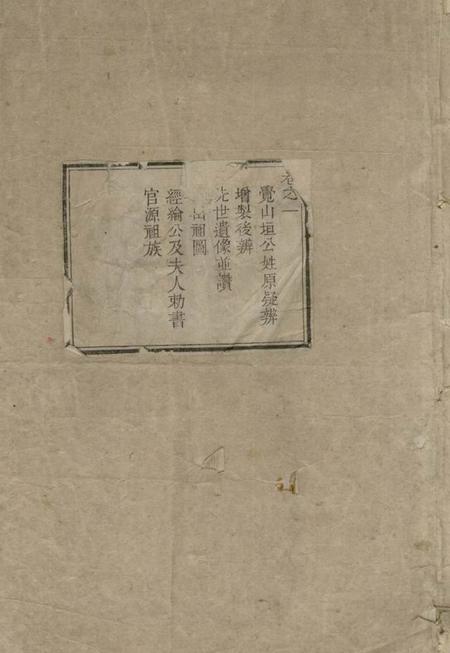 卷之一
覺山垣公姓原疑辨
增製後辨
先世遺像並讚
祖圖
經綸公及夫人勅書
官源祖族